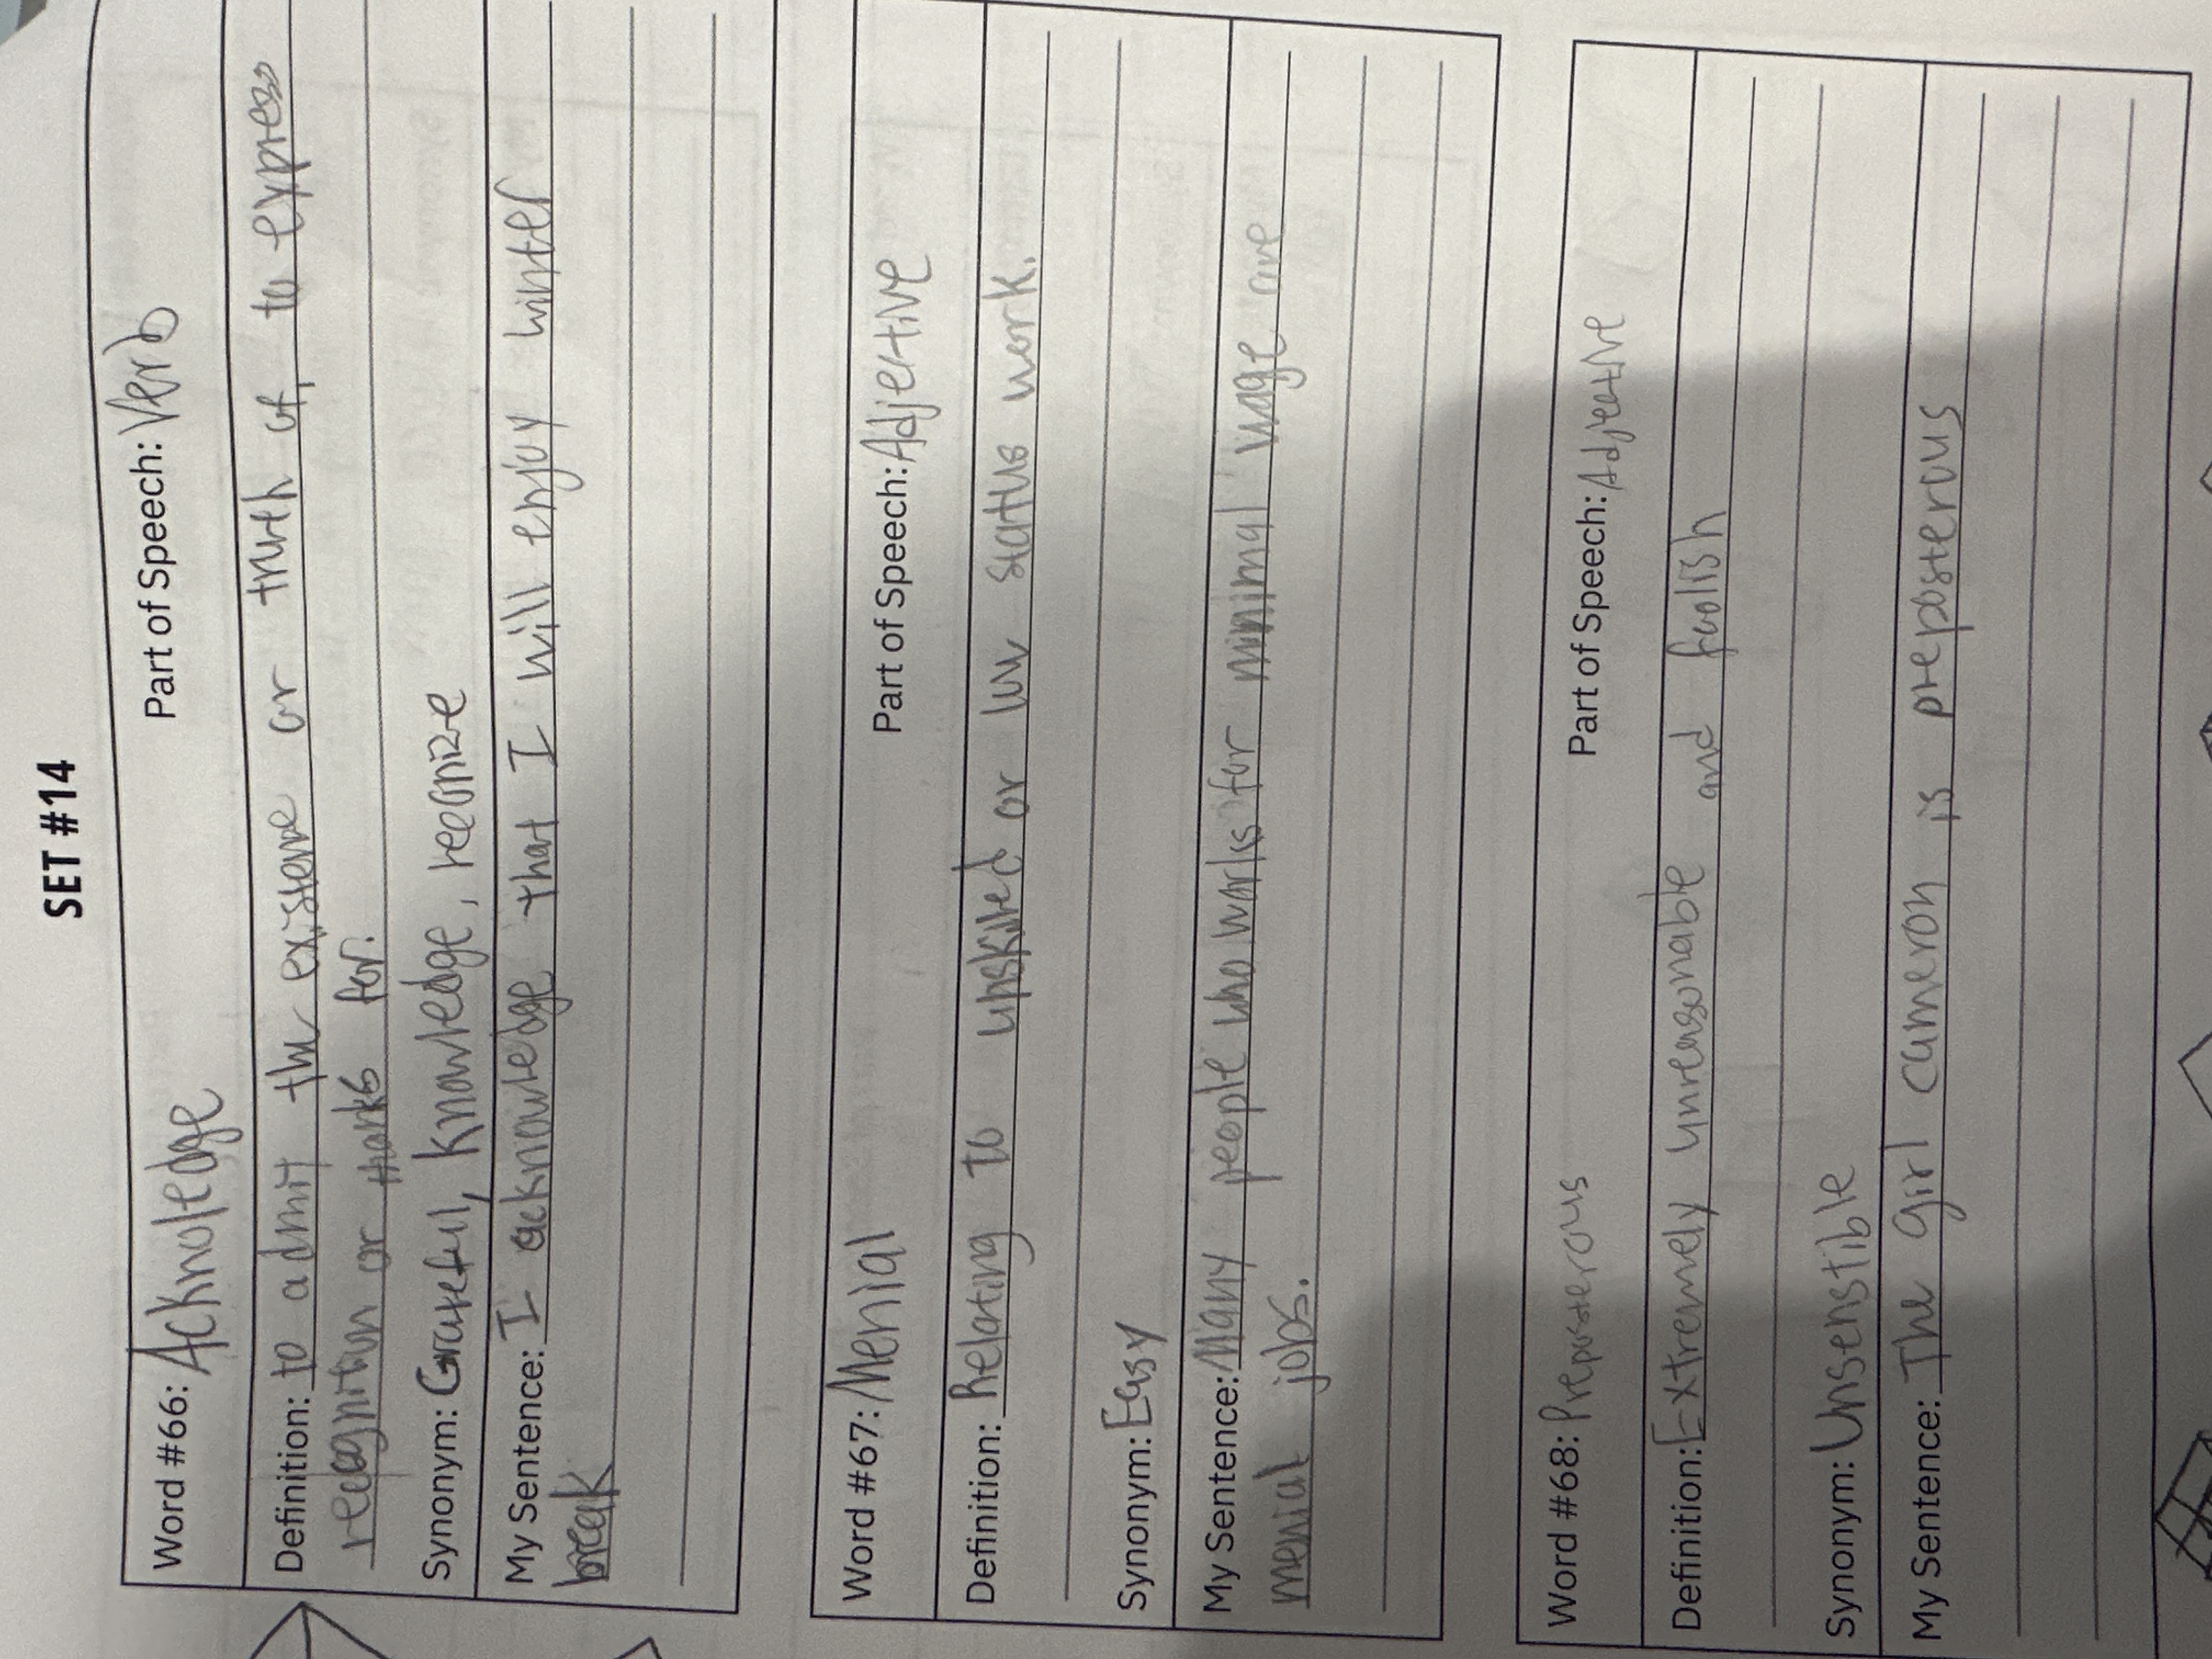 SET #14
Word #66: Acknoledge Part of Speech: Verb
Definition: to admit the existense or truth of, to express
recognition or thanks for.
Synonym: Grateful, Knowledge, reconize
My Sentence: I acknowledge that I will enjoy winter
break
Word #67: Menial Part of Speech: Adjective
Definition: Relating to unskilled or low status work.
Synonym: Easy
My Sentence: Many people who works for minimal wage are
menial jobs.
Word #68: Preposterous Part of Speech: Adjective
Definition: Extremely unreasonable and foolish
Synonym: Unsenstible
My Sentence: The girl cameron is preposterous